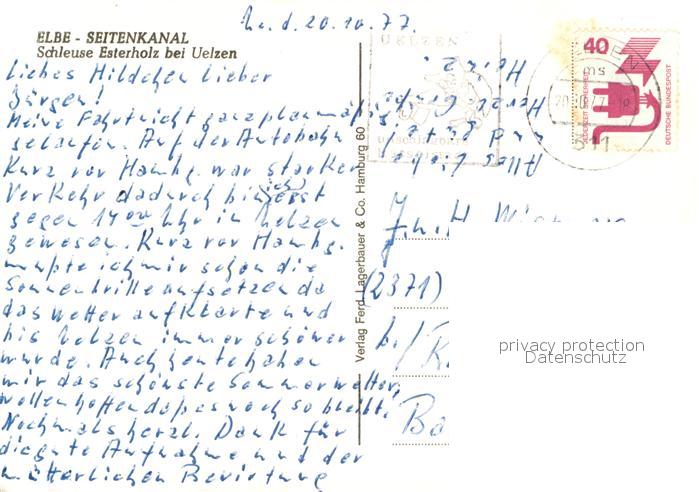 Ue. d. 20.10.77.
ELBE - SEITENKANAL
Schleuse Esterholz bei Uelzen
Liebes Hildchen Lieber
Jürgen!
Meine Fahrt nicht ganz planmäßig
gelaufen. Auf der Autobahn
Kurz vor Hambg. war starker
Verkehr dadurch bin ich erst
gegen 14 00 Uhr in Uelzen
gewesen. Kurz vor Hambg.
mußte ich mir schon die
Sonnenbrille aufsetzen da
das Wetter aufklarte und
bis Uelzen immer schöner
wurde. Auch heute haben
wir das schönste Sommerwetter,
wollen hoffen daß es noch so bleibt.
Nochmals herzl. Dank für
die gute Aufnahme und der
mütterlichen Bewirtung
Alles Liebe
und gute
Herzl. Grüße
Heinz.
Verlag Ferd. Lagerbauer & Co. Hamburg 60
UELZEN
40
JEDERZEIT SICHERHEIT
DEUTSCHE BUNDESPOST
ms
311
(2371)
b./
Ba
privacy protection
Datenschutz